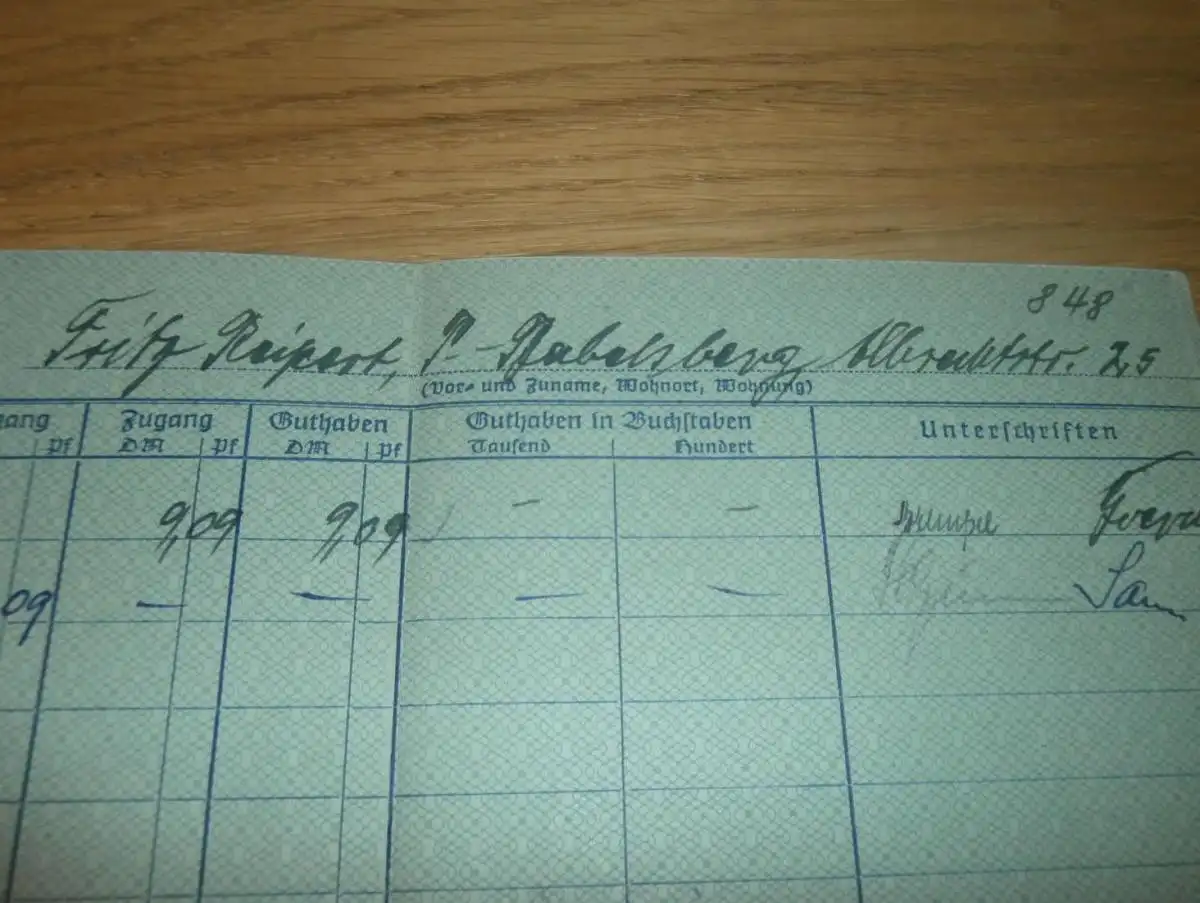 848
Fritz Reipert, P.-Babelsberg Albrechtstr. 25
(Vor- und Zuname, Wohnort, Wohnung)
gang Zugang Guthaben Guthaben in Buchstaben Unterschriften
Pf DM Pf DM Pf Tausend Hundert
9,09 9,09 — —
09 — — — —